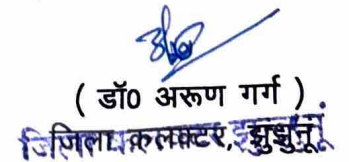 ( डॉ0 अरूण गर्ग )
जिला कलक्टर, झुन्झुनूं